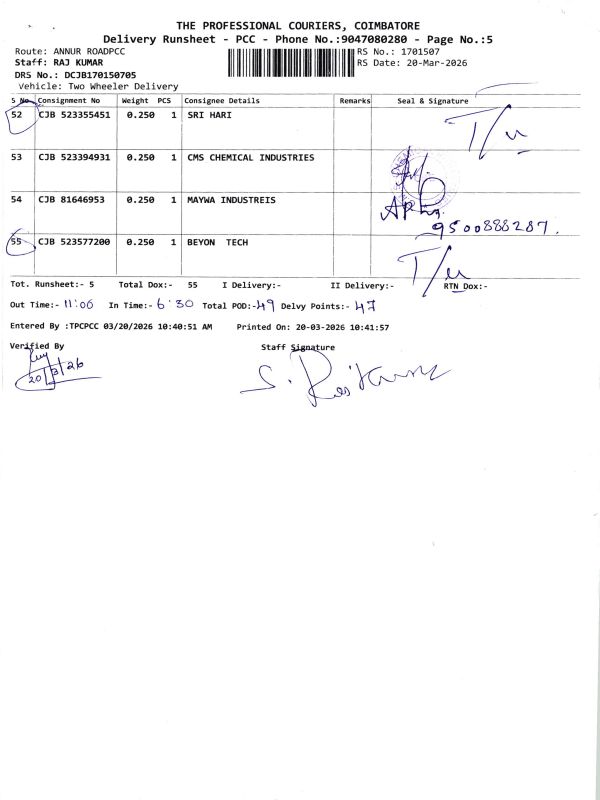 THE PROFESSIONAL COURIERS, COIMBATORE
Delivery Runsheet - PCC - Phone No.:9047080280 - Page No.:5
Route: ANNUR ROADPCC RS No.: 1701507
Staff: RAJ KUMAR RS Date: 20-Mar-2026
DRS No.: DCJB170150705
Vehicle: Two Wheeler Delivery
S No Consignment No Weight PCS Consignee Details Remarks Seal & Signature
52 CJB 523355451 0.250 1 SRI HARI T/u
53 CJB 523394931 0.250 1 CMS CHEMICAL INDUSTRIES
54 CJB 81646953 0.250 1 MAYWA INDUSTREIS
9500888287.
55 CJB 523577200 0.250 1 BEYON TECH T/u
Tot. Runsheet:- 5 Total Dox:- 55 I Delivery:- II Delivery:- RTN Dox:-
Out Time:- 11:06 In Time:- 6:30 Total POD:- 49 Delvy Points:- 47
Entered By :TPCPCC 03/20/2026 10:40:51 AM Printed On: 20-03-2026 10:41:57
Verified By Staff Signature
20/3/26
S. Rajkumar